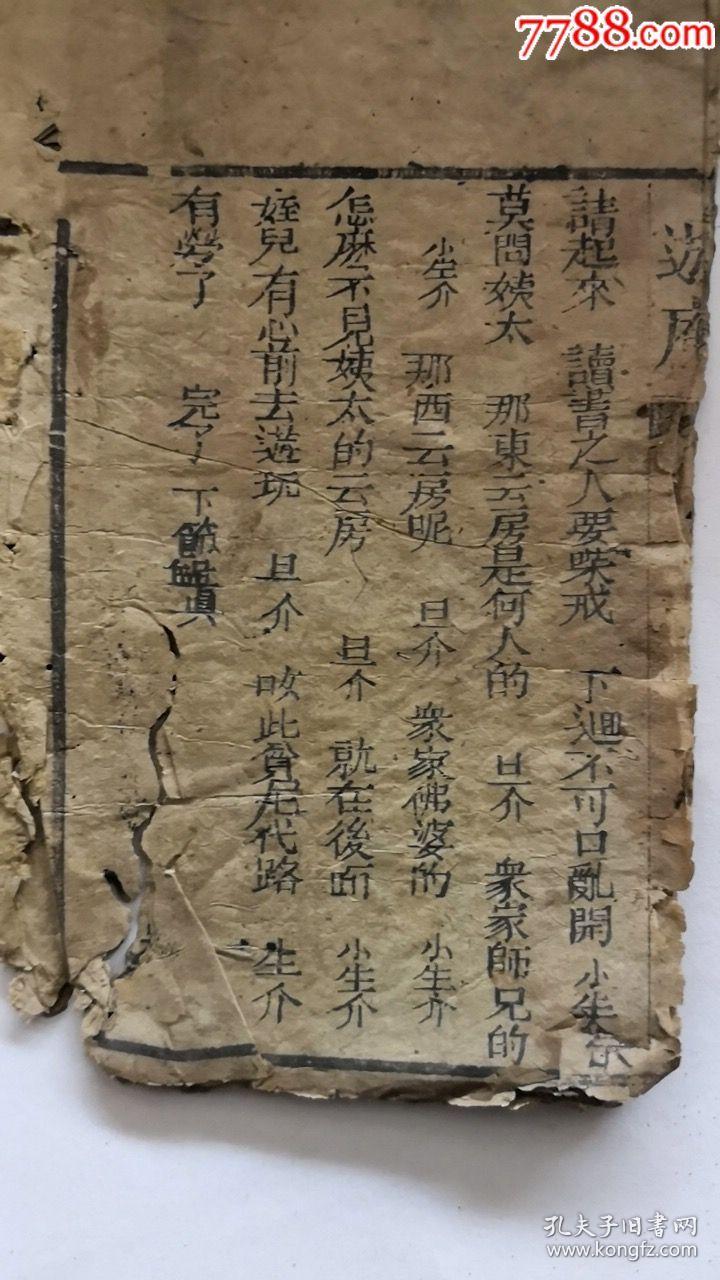 7788.com
請起來 讀書之人要柴戒 下迴不可口亂開 小生
莫問姨太 那東云房是何人的 旦介 衆家師兄的
小生介 那西云房呢 旦介 衆家佛婆的 小生介
怎麽不見姨太的云房 旦介 就在後面 小生介
姪兒有心前去遊玩 旦介 此貧尼代路 生介
有勞了 完了 下
孔夫子旧書网
www.kongfz.com